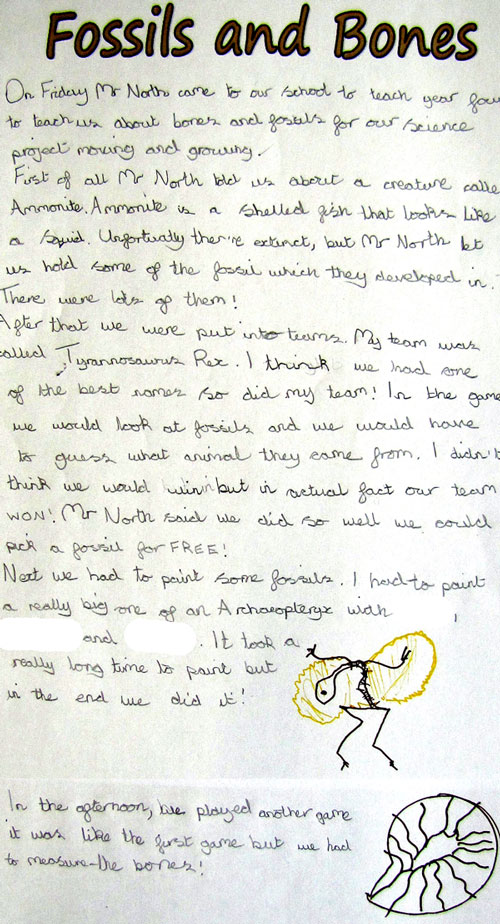 Fossils and Bones
On Friday Mr North came to our school to teach year four
to teach us about bones and fossils for our science
project moving and growing.
First of all Mr North told us about a creature calle
Ammonite. Ammonite is a shelled fish that looks like
a squid. Unfortually ther're extinct, but Mr North let
us hold some of the fossil which they developed in.
There were lots of them!
After that we were put into teams. My team was
called Tyrannosaurus Rex. I think we had one
of the best names so did my team! In the game
we would look at fossils and we would have
to guess what animal they came from. I didn't
think we would win but in actual fact our team
WON! Mr North said we did so well we could
pick a fossil for FREE!
Next we had to paint some fossils. I had to paint
a really big one of an Archaeopteryx with ,
and . It took a
really long time to paint but
in the end we did it!
In the afternoon, we played another game
it was like the first game but we had
to measure the bones!